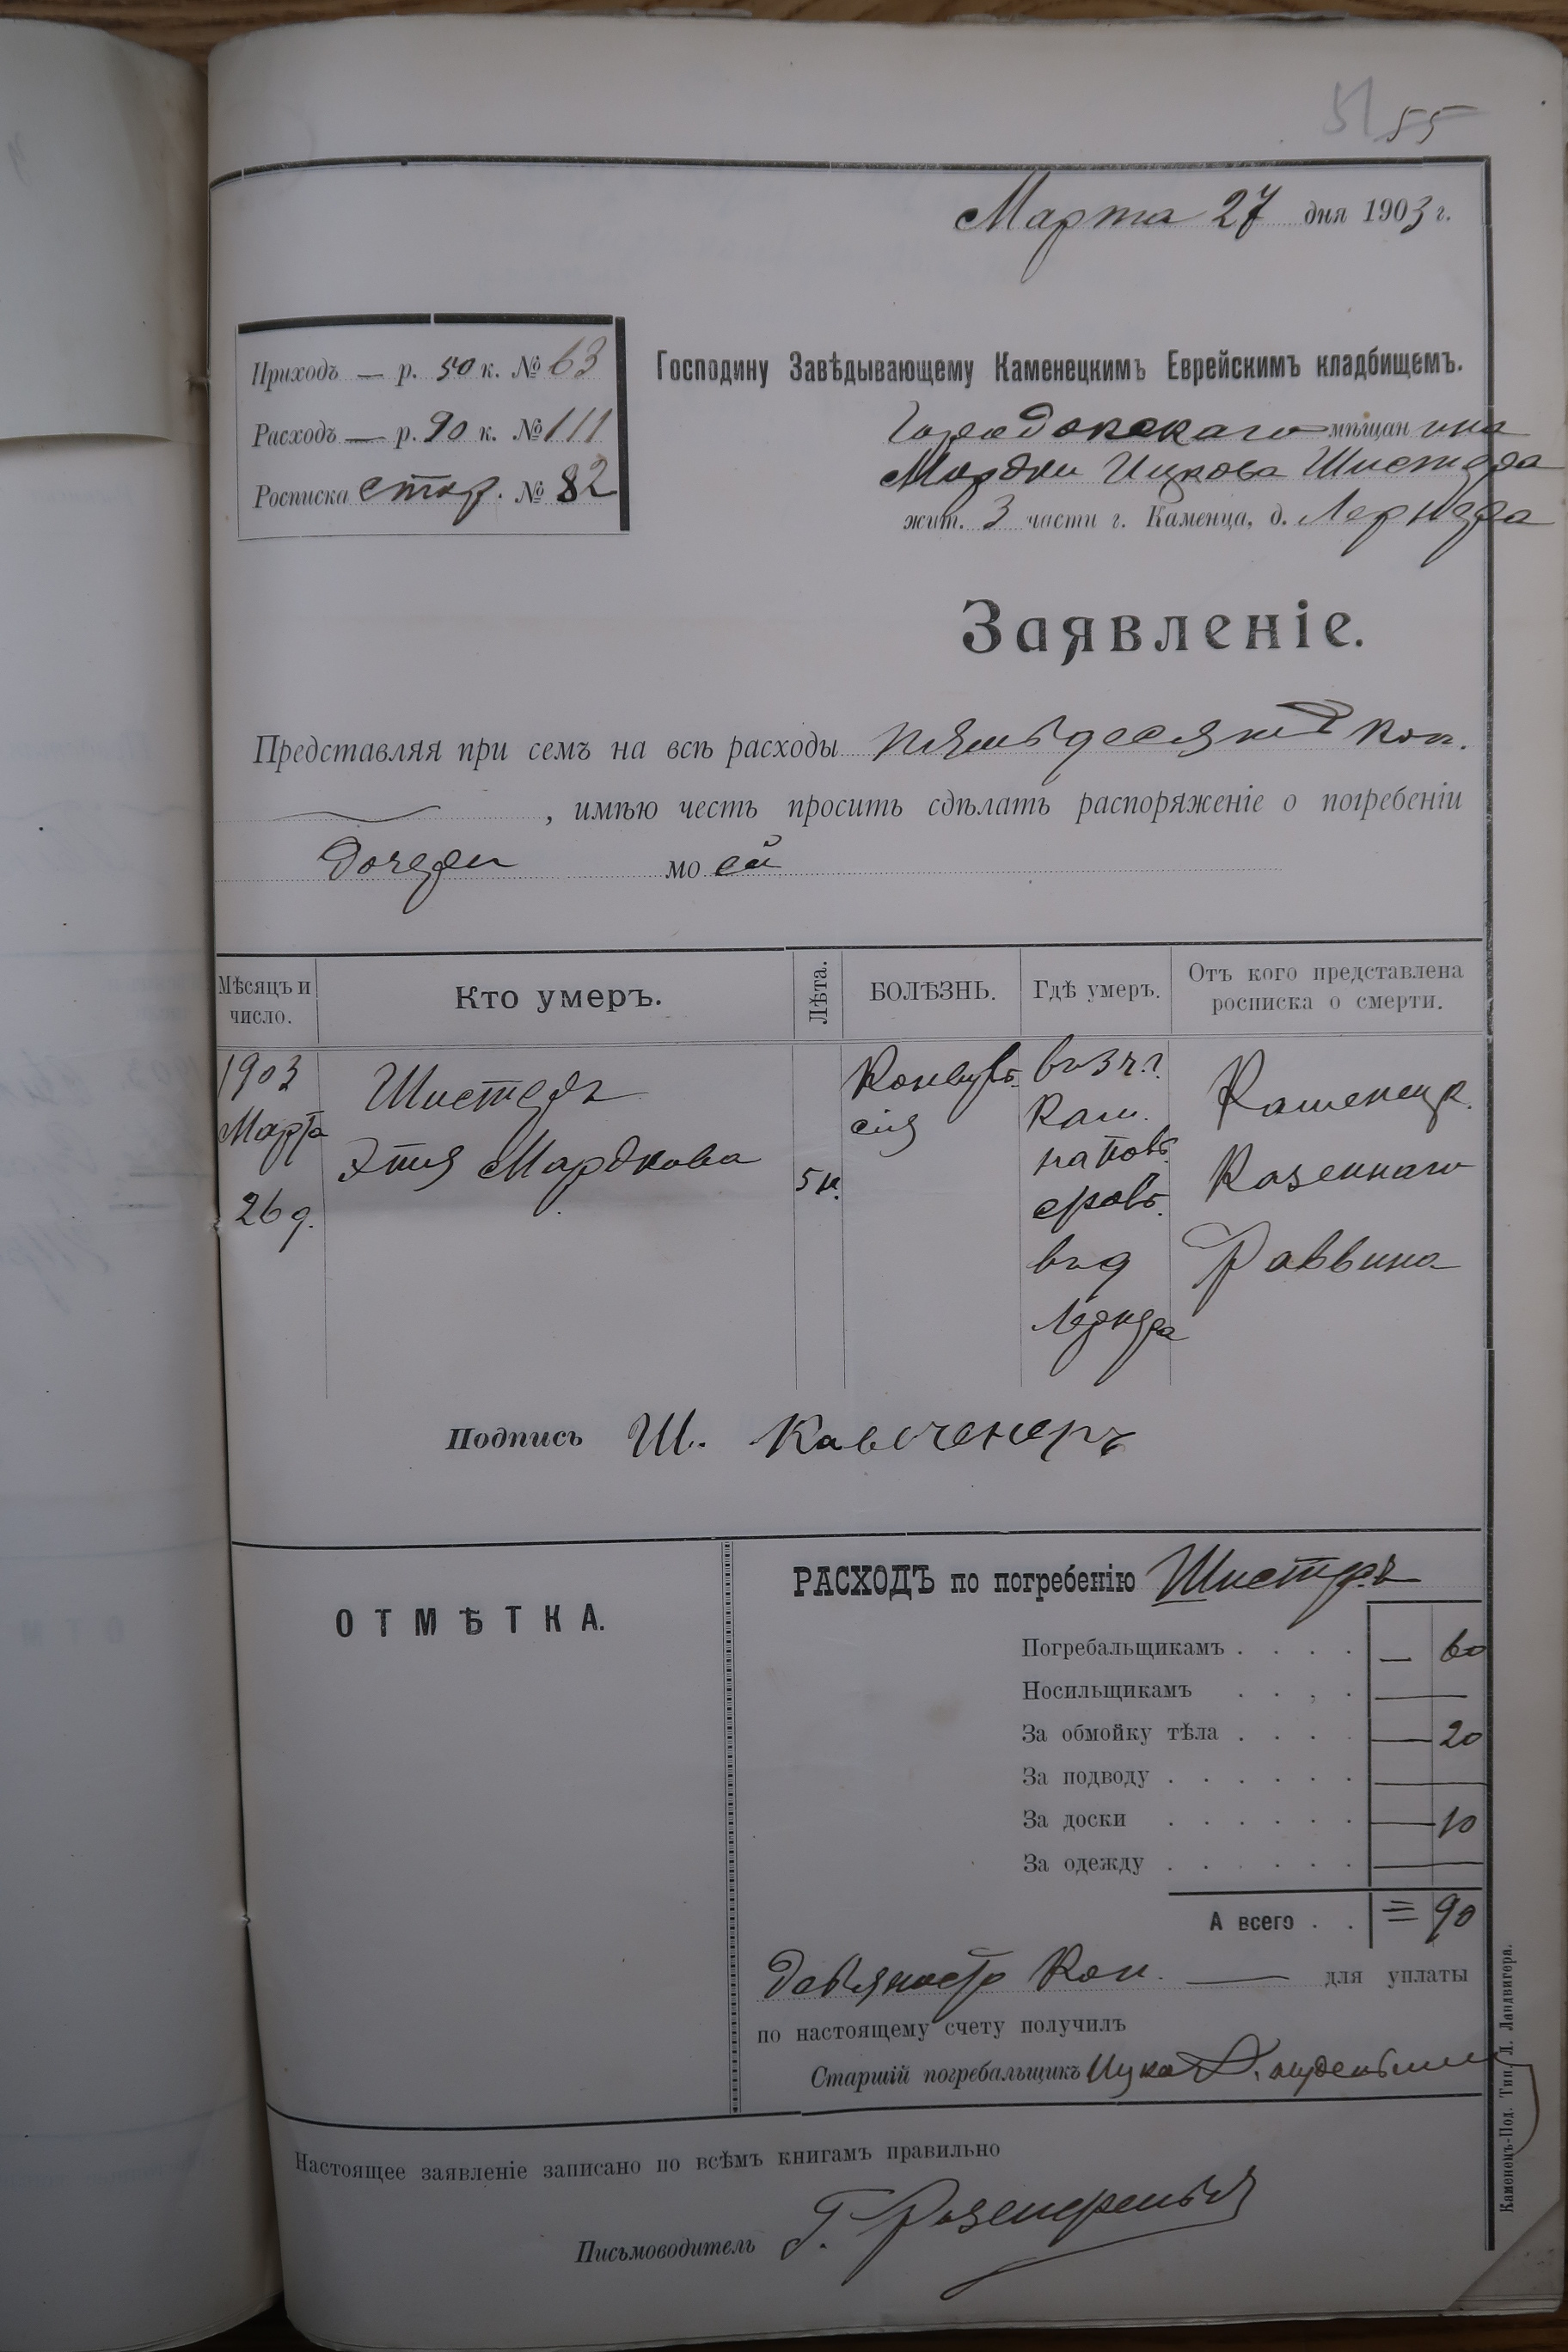 51 55
Марта 27 дня 1903 г.
Приходъ — р. 50 к. № 63
Расходъ — р. 90 к. № 111
Росписка стар. № 82
Господину Завѣдывающему Каменецкимъ Еврейскимъ кладбищемъ.
Городокскаго мѣщанина
Мордки Ицкова Шистера
жит. 3 части г. Каменца, д. Лернера
Заявленіе.
Представляя при семъ на всѣ расходы пятьдесятъ коп.
, имѣю честь просить сдѣлать распоряженіе о погребеніи
дочери моей
Мѣсяцъ и число.
Кто умеръ.
Лѣта.
БОЛѢЗНЬ.
Гдѣ умеръ.
Отъ кого представлена росписка о смерти.
1903
Марта
26 д.
Шистеръ
Этля Мордкова
5 н.
Конвуль-
сія
въ 3 ч. г.
Кам.
въ д
Лернера
Каменецк.
Казеннаго
Раввина
Подпись Ш.
ОТМѢТКА.
РАСХОДЪ по погребенію Шистеръ
Погребальщикамъ . . . . — 60
Носильщикамъ . . . . —
За обмойку тѣла . . . . — 20
За подводу . . . . . . —
За доски . . . . . . — 10
За одежду . . . . . . —
А всего . . = 90
девяносто коп. — для уплаты
по настоящему счету получилъ
Старшій погребальщикъ Ицко
Настоящее заявленіе записано по всѣмъ книгамъ правильно
Письмоводитель Г.
Каменецъ-Под. Тип. Л. Ландвигера.